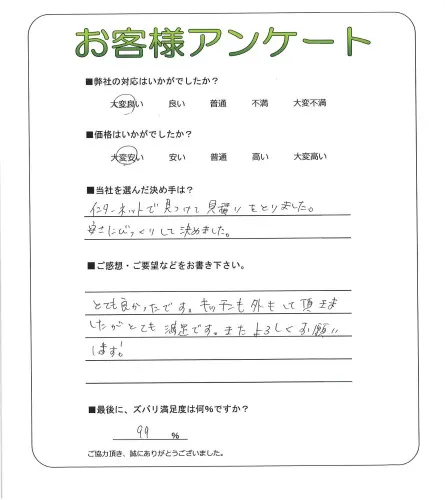 お客様アンケート
■弊社の対応はいかがでしたか？
大変良い 良い 普通 不満 大変不満
■価格はいかがでしたか？
大変安い 安い 普通 高い 大変高い
■当社を選んだ決め手は？
インターネットで見つけて見積りをとりました。
安さにびっくりして決めました。
■ご感想・ご要望などをお書き下さい。
とても良かったです。キッチンも外もして頂きま
したがとても満足です。またよろしくお願い
します!
■最後に、ズバリ満足度は何%ですか？
99 %
ご協力頂き、誠にありがとうございました。